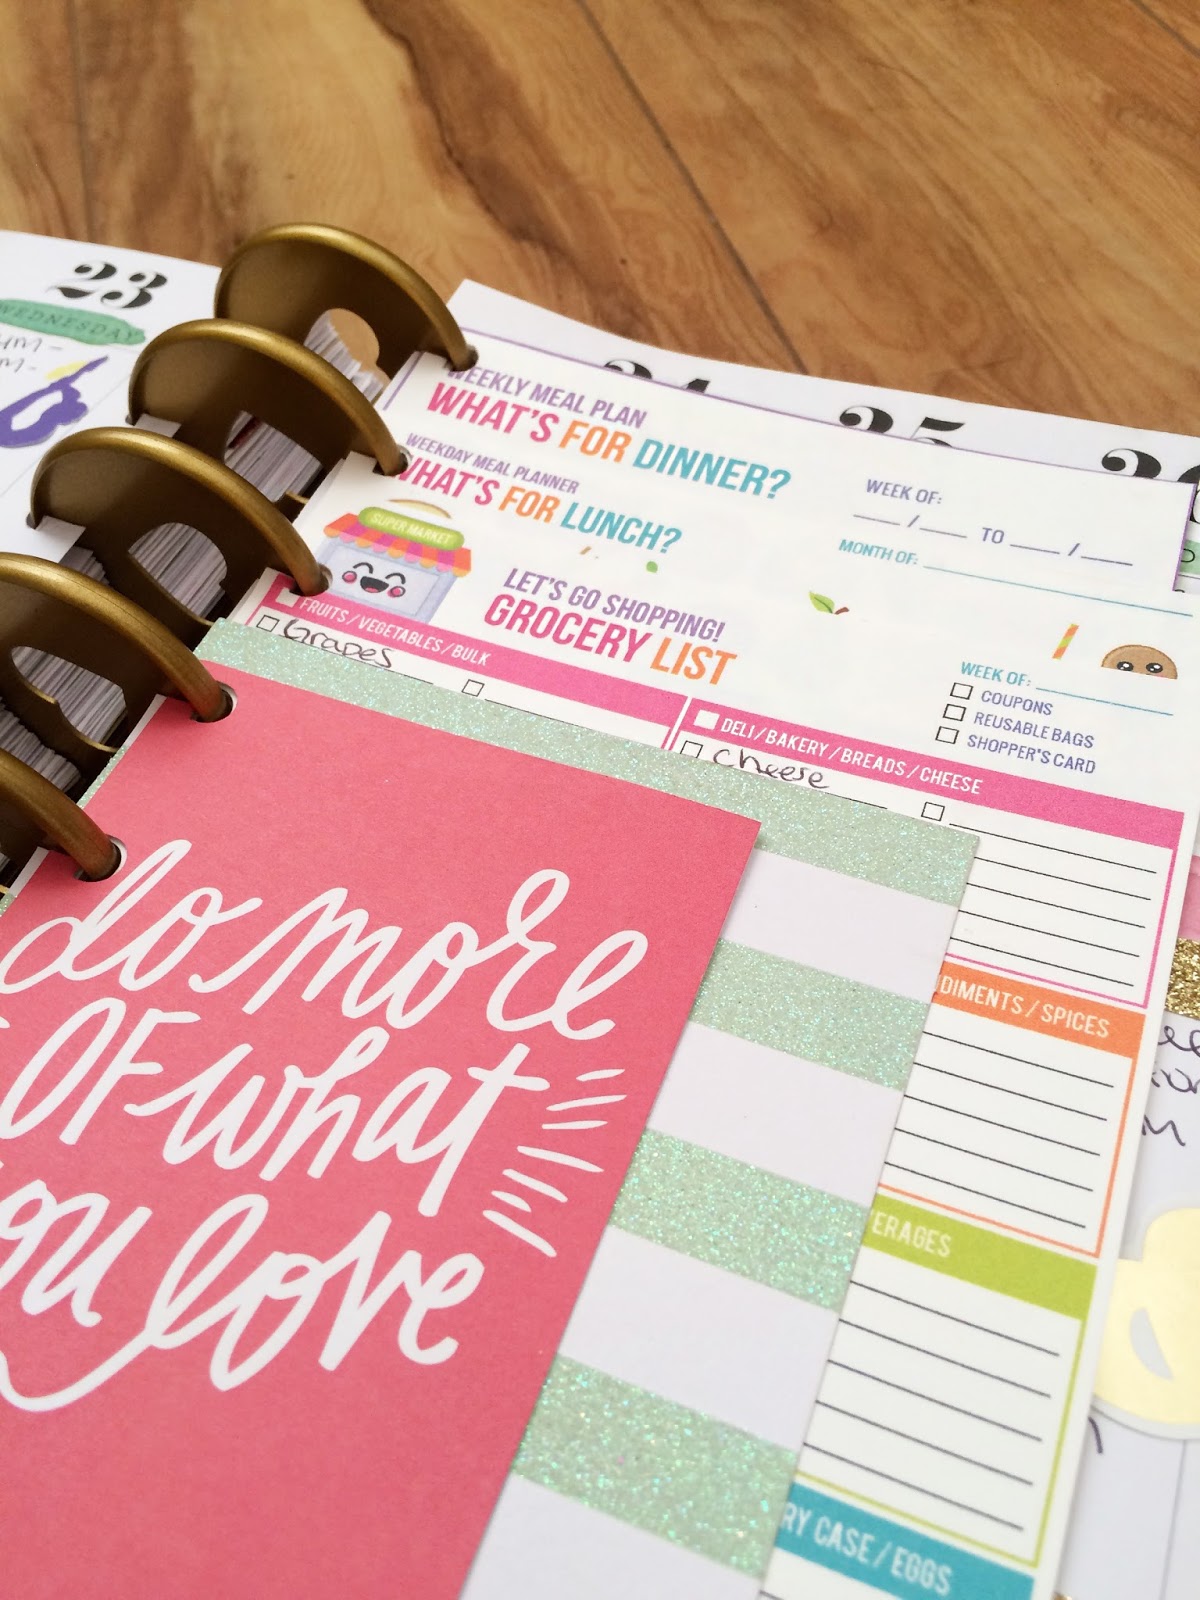 23
WEDNESDAY
24
25
26
WEEKLY MEAL PLAN
WHAT'S FOR DINNER?
WEEK OF:
__ / __ TO __ / __
WEEKDAY MEAL PLANNER
WHAT'S FOR LUNCH?
MONTH OF:
SUPER MARKET
LET'S GO SHOPPING!
GROCERY LIST
WEEK OF:
COUPONS
REUSABLE BAGS
SHOPPER'S CARD
FRUITS / VEGETABLES / BULK
Grapes
DELI / BAKERY / BREADS / CHEESE
cheese
DIMENTS / SPICES
VERAGES
RY CASE / EGGS
do more
OF what
you love